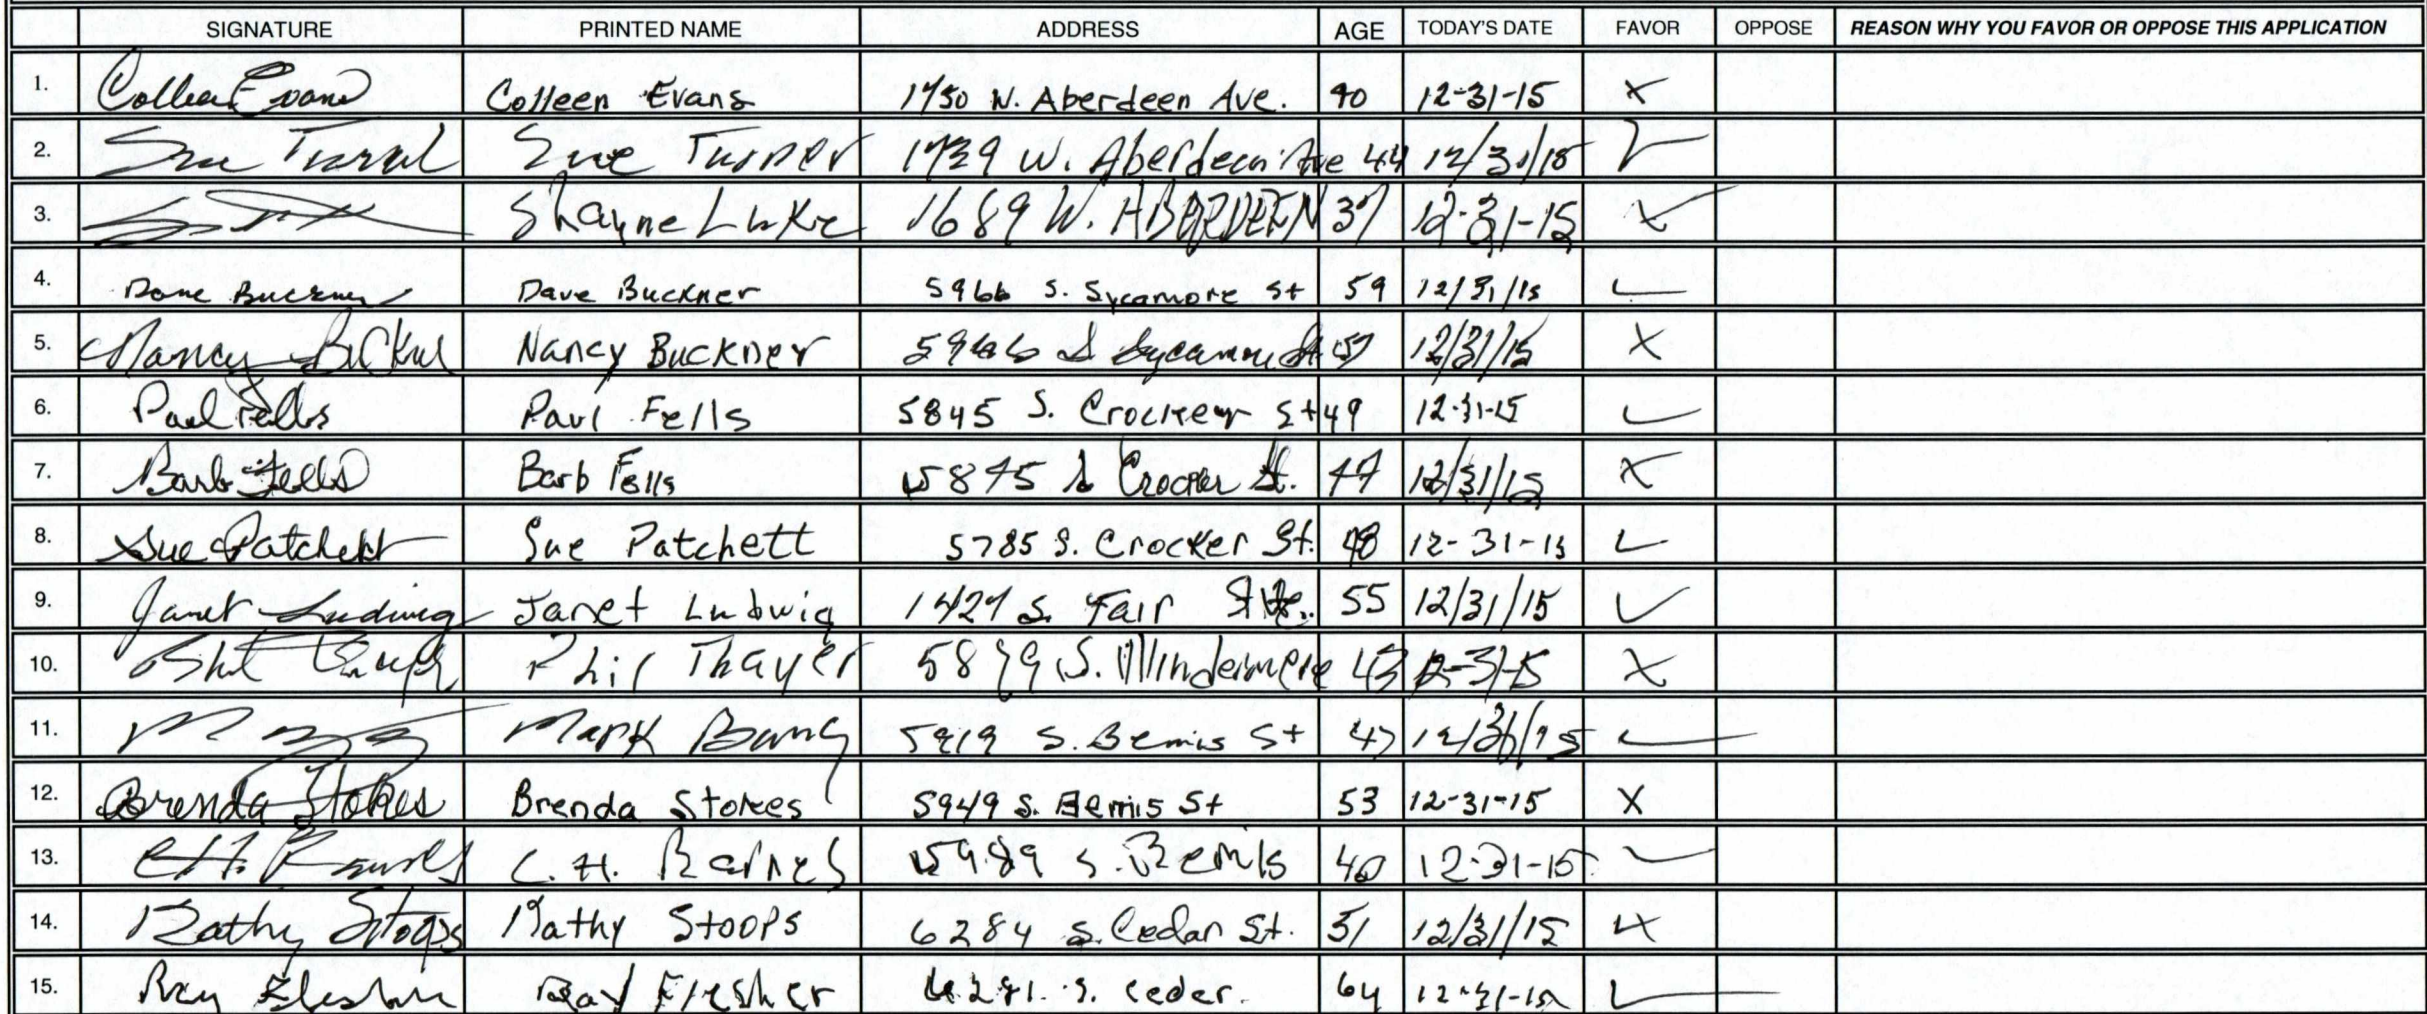 SIGNATURE PRINTED NAME ADDRESS AGE TODAY'S DATE FAVOR OPPOSE REASON WHY YOU FAVOR OR OPPOSE THIS APPLICATION
1. Colleen Evans Colleen Evans 1750 W. Aberdeen Ave. 40 12-31-15 X
2. Sue Turner Sue Turner 1739 W. Aberdeen Ave 44 12/31/15 ✓
3. Shayne Luke 1689 W. ABERDEEN 37 12-31-15 X
4. Dave Buckner Dave Buckner 5966 S. Sycamore St 59 12/31/15 ✓
5. Nancy Buckner Nancy Buckner 5966 S Sycamore St 57 12/31/15 X
6. Paul Fells Paul Fells 5845 S. Crocker St 49 12-31-15 ✓
7. Barb Fells Barb Fells 5845 S Crocker St. 47 12/31/15 X
8. Sue Patchett Sue Patchett 5785 S. Crocker St. 48 12-31-15 ✓
9. Janet Ludwig Janet Ludwig 1427 S. Fair 55 12/31/15 ✓
10. Phil Thayer Phil Thayer 5879 S. Windermere 43 12-31-15 X
11. Mark 5919 S. Bemis St 47 12/31/15 ✓
12. Brenda Stokes Brenda Stokes 5949 S. Bemis St 53 12-31-15 X
13. C.H. Barnes C. H. Barnes 5989 S. Bemis 40 12-31-15 ✓
14. Kathy Stoops Kathy Stoops 6284 S. Cedar St. 51 12/31/15 X
15. Ray Flesher Ray Flesher 6281 S. Ceder. 64 12-31-15 ✓